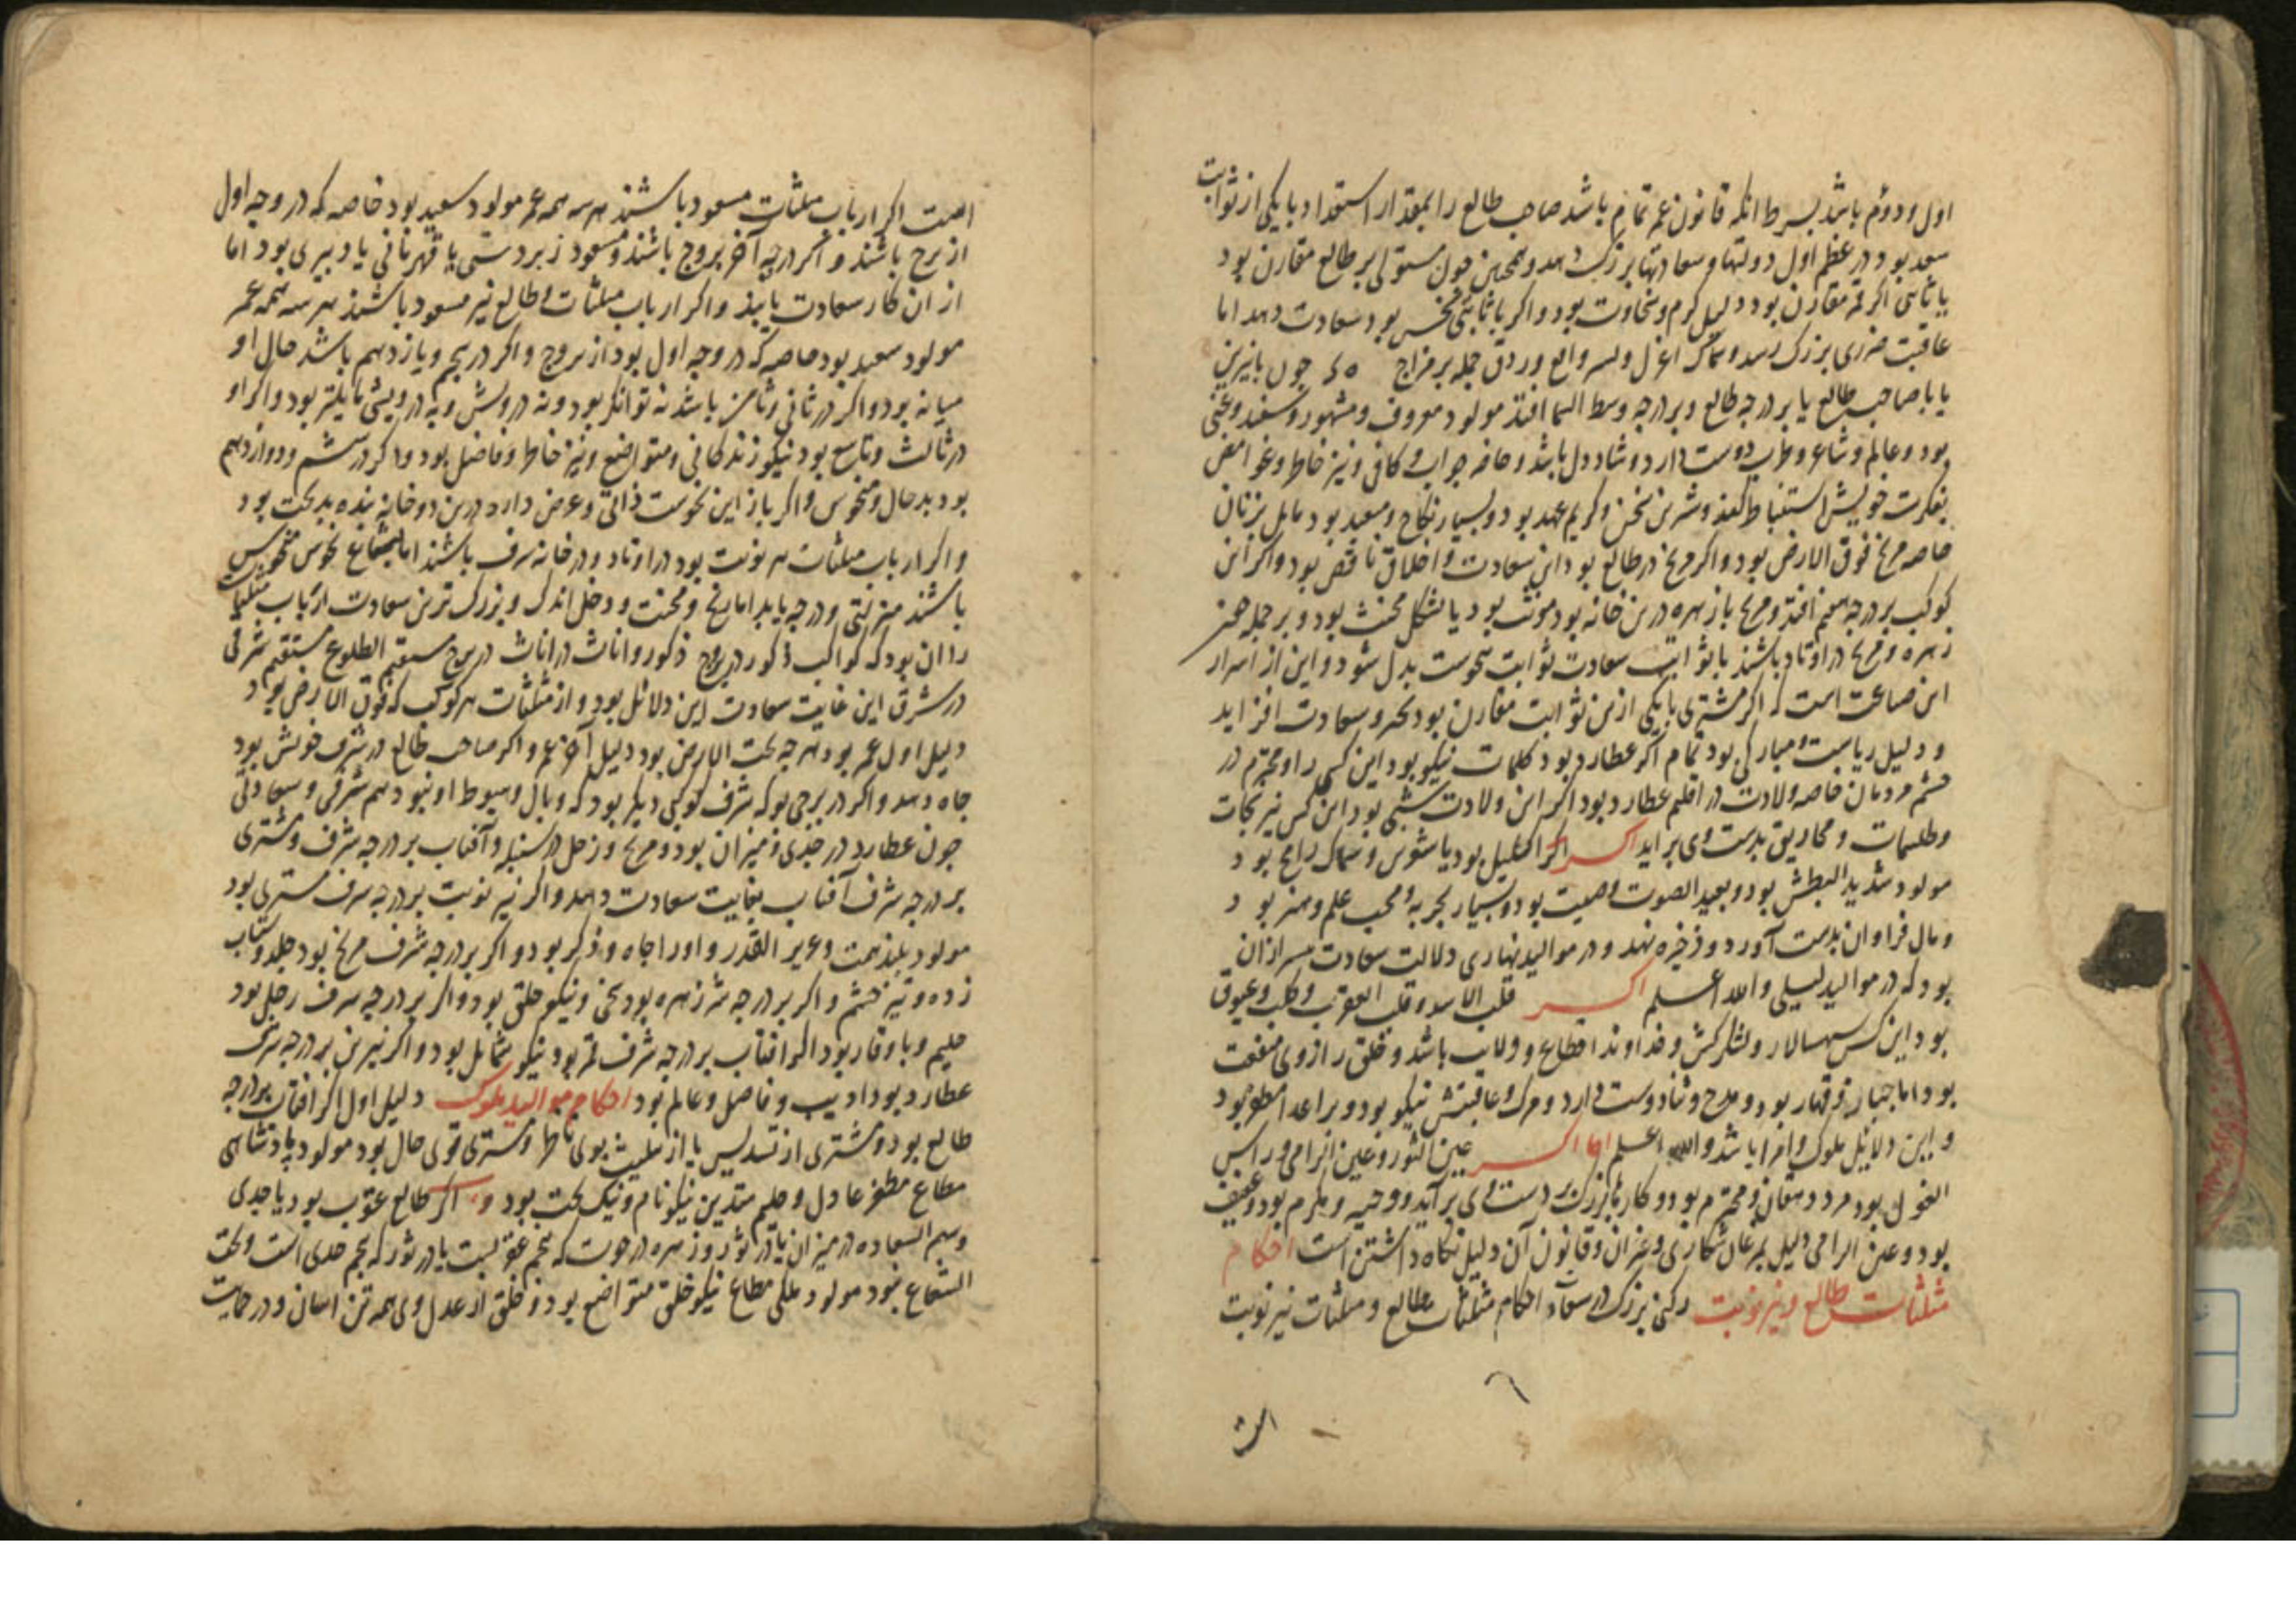 اول ودوم باشد بشرط انکه قانون عمر تمام باشد صاحب طالع را بمقدار استعداد با یکی از ثوابت
سعد بود در عظم اول دولتها وسعادتها بزرک دهد وهمچنین چون مستولی بر طالع مقارن بود
با ثابتی اکر قمر مقارن بود دلیل کرم وسخاوت بود واکر با ثابتی نحس بود سعادت دهد اما
عاقبت ضرری بزرک رسد وسماک اعزل ونسر واقع وردف جمله بر مزاج چون با نیرین
یا با صاحب طالع یا بر درجه طالع وبر درجه وسط السما افتد مولود معروف ومشهور وغنی
بود وعالم وشاعر وطرب دوست دارد وشاد دل باشد وحاضر جواب وکافی وتیز خاطر وغوامض
بفکرت خویش استنباط کند وشیرین سخن وکریم عهد بود وبسیار نکاح وسعید بود مایل بزنان
خاصه مریخ فوق الارض بود واکر مریخ در طالع بود این سعادت واخلاق ناقص بود واکر این
کوکب بر درجه هفتم افتد ومریخ با زهره درین خانه بود مونث بود یا بشکل مخنث بود وبر جمله هر
زهره ومریخ در اوتاد باشند با ثوابت سعادت ثوابت بنحوست بدل شود واین از اسرار
این صناعت است که اکر مشتری با یکی ازین ثوابت مقارن بود وسعادت افزاید
ودلیل ریاست ومبارکی بود تمام اکر عطارد بود کلمات نیکو بود این کس را ومحترم در
چشم مردمان خاصه ولادت در اقلیم عطارد بود اکر این ولادت شبی بود این کس نیرنجات
وطلسمات ومخاریق بدست وی براید اکسر اکر اکلیل بود یا شوس وسماک رامح بود
مولود شدید البطش بود وبعید الصوت وصیت بود وبسیار تجربه ومحب علم وهنر بود
ومال فراوان بدست آورد وذخیره نهد ودر موالید نهاری دلالت سعادت بیش از ان
بود که در موالید لیلی والله اعلم اکسر قلب الاسد وقلب العقرب وکلب وعیوق
بود این کس سپهسالار ولشکرکش وخداوند اقطاع وولایت باشد وخلق را از وی منفعت
بود اما جبار وقهار بود ومدح وثنا دوست دارد ومرک وعاقبتش نیکو بود وبر اعدا مظفر بود
واین دلایل ملوک وامرا باشد والله اعلم اما اکسر عین الثور وعین الرامی وراس
الغول بود مرد دهقان ومحترم بود وکارها بزرک بر دست وی برآید ووجیه ومکرم بود وعفیف
بود وعین الرامی دلیل مرغان شکاری وغزان وقانون آن دلیل نکاه داشتن است احکام
مثلثات طالع ونیر نوبت رکنی بزرک در سعادت احکام مثلثات طالع ومثلثات نیر نوبت
است
است اکر ارباب مثلثات مسعود باشند هر سه همه عمر مولود سعید بود خاصه که در وجه اول
از برج باشند واکر در جه آخر بروج باشند ومسعود زبردستی یا قهرمانی یا دبیری بود اما
از ان کار سعادت یابند واکر ارباب مثلثات وطالع نیز مسعود باشند هر سه همه عمر
مولود سعید بود خاصه که در وجه اول بود از بروج واکر در پنجم ویازدهم باشد حال او
میانه بود واکر در ثانی وثامن باشد نه توانکر بود ونه درویش وبه درویشی مایلتر بود واکر او
در ثالث وتاسع بود نیکو زندکانی ومتواضع وتیز خاطر وفاضل بود واکر در ششم ودوازدهم
بود بد حال ومنحوس واکر باز این نحوست ذاتی وعرضی دارد درین دو خانه بنده بدبخت بود
واکر ارباب مثلثات هر نوبت بود در اوتاد ودر خانه شرف باشند اما بشعاع نحوس منحوس
باشند منزلتی ودرجه یابد اما برنج ومحنت ودخل اندک وبزرک ترین سعادت ارباب مثلثات
را ان بود که کواکب ذکور در بروج ذکور واناث در اناث در بروج مستقیم الطلوع مستقیم شرقی
در شرق این غایت سعادت این دلائل بود واز مثلثات هر کوکب که فوق الارض بود
دلیل اول عمر بود وهر چه تحت الارض بود دلیل آخر عمر واکر صاحب طالع در شرف خویش بود
جاه دهد واکر در برجی بود که شرف کوکبی دیکر بود که وبال وهبوط او نبود هم شرفی وسعادتی
چون عطارد در جدی ومیزان بود ومریخ وزحل در سنبله وآفتاب بر درجه شرف مشتری
بر درجه شرف آفتاب بغایت سعادت دهد واکر نیر نوبت بر درجه شرف مشتری بود
مولود بلند همت وعزیز القدر واورا جاه وذکر بود واکر بر درجه شرف مریخ بود جلد وشتاب
زده وتیز خشم واکر بر درجه شرف زهره بود سخی ونیکو خلق بود واکر بر درجه شرف زحل بود
حلیم وبا وقار بود اکر افتاب بر درجه شرف قمر بود نیکو شمایل بود واکر نیرین بر درجه شرف
عطارد بود ادیب وفاضل وعالم بود احکام موالید ملوک دلیل اول اکر افتاب بر درجه
طالع بود ومشتری از تسدیس یا از تثلیث بوی ناظر ومشتری قوی حال بود مولود پادشاهی
مطاع مظفر عادل وحلیم متدین نیکو نام ونیک بخت بود اکر طالع عقرب بود یا جدی
وسهم السعاده در میزان یا در ثور وزهره در حوت که پنجم عقربست یا در ثور که پنجم جدی است وتحت
الشعاع نبود مولود ملکی مطاع نیکو خلق متواضع بود وخلق از عدل وی همه تن اسان ودر حمایت